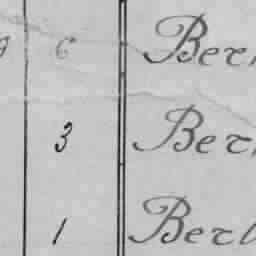 6 Ber
3 Ber
1 Berl